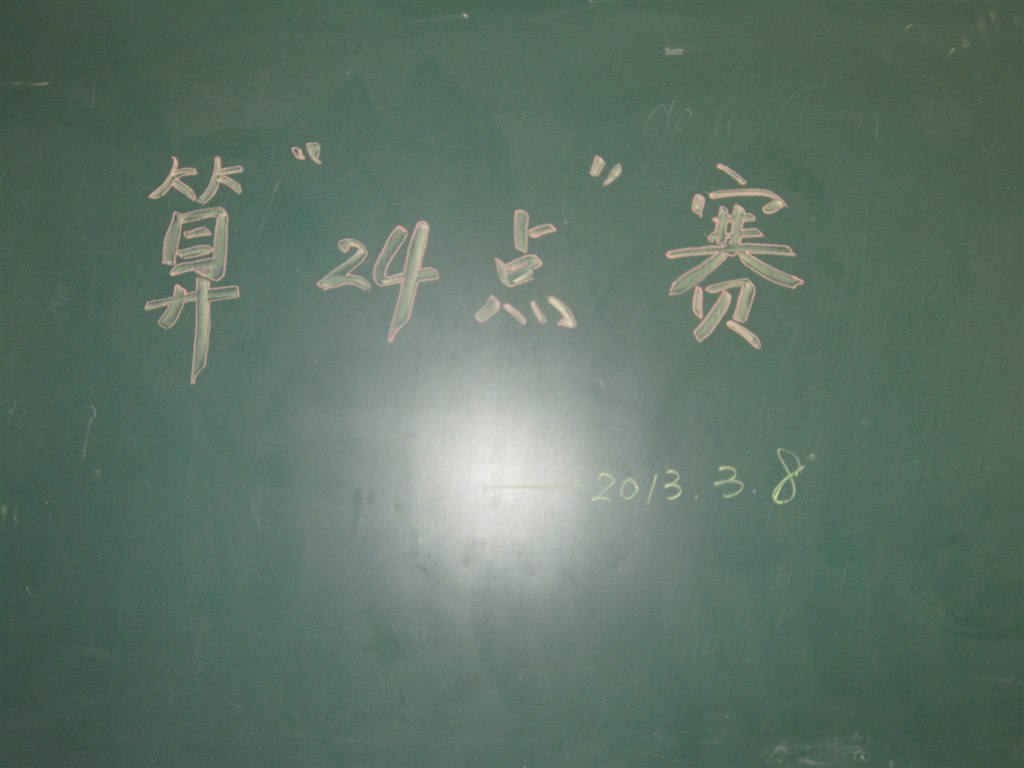 算“24点”赛
——2013.3.8